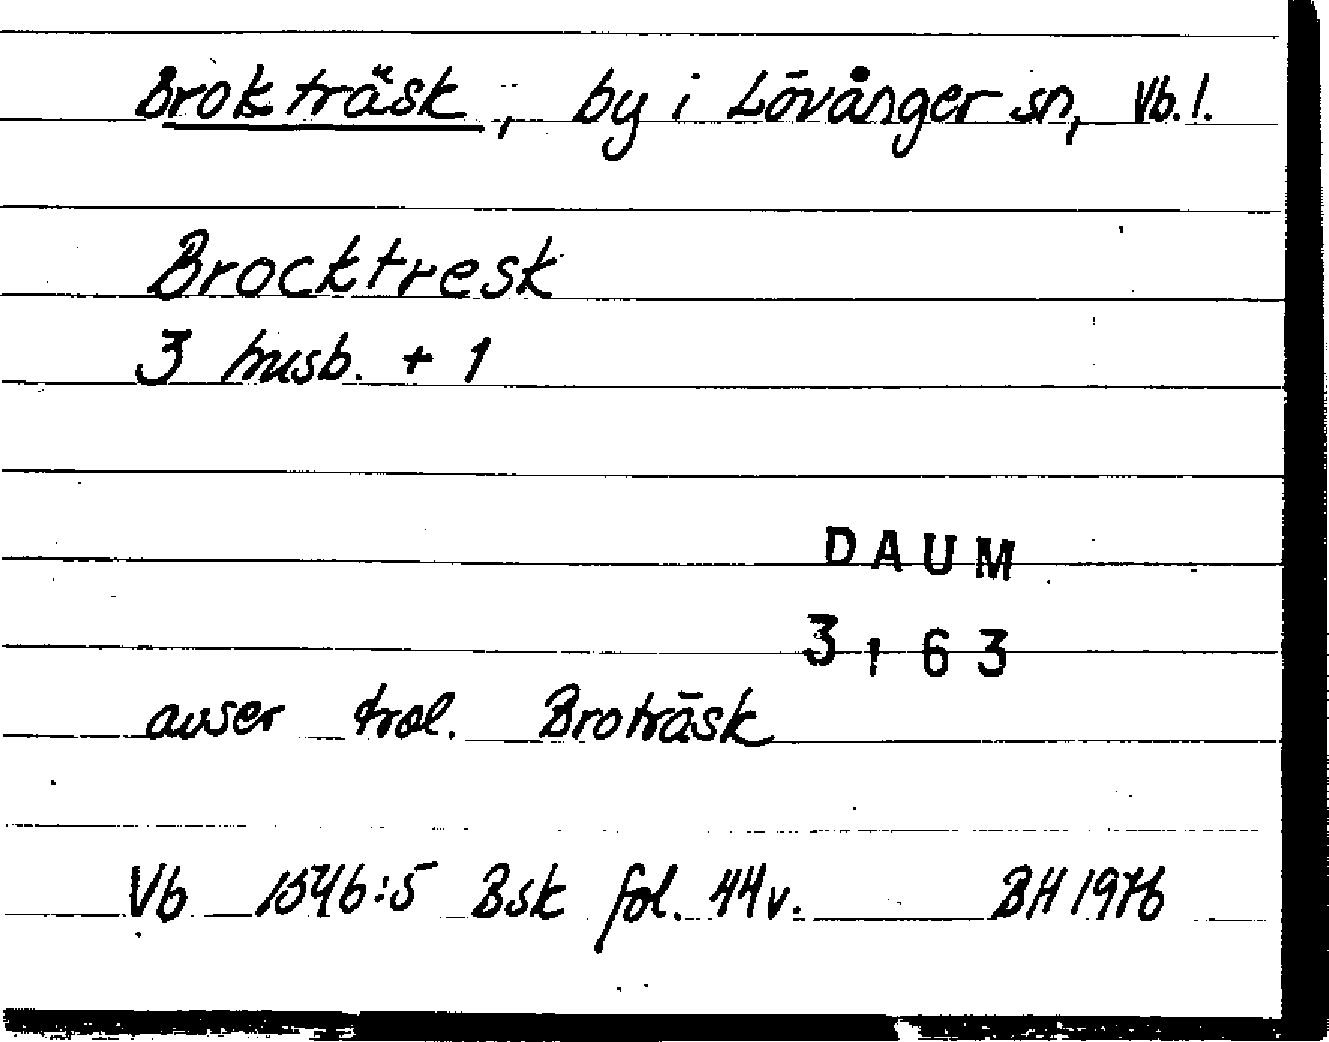 Brokträsk, by i Lövånger sn, Vb. l.
Brocktresk
3 husb. + 1
DAUM
3163
avser trol. Broträsk
Vb 1546:5 Bsk fol. 44v. BH 1976